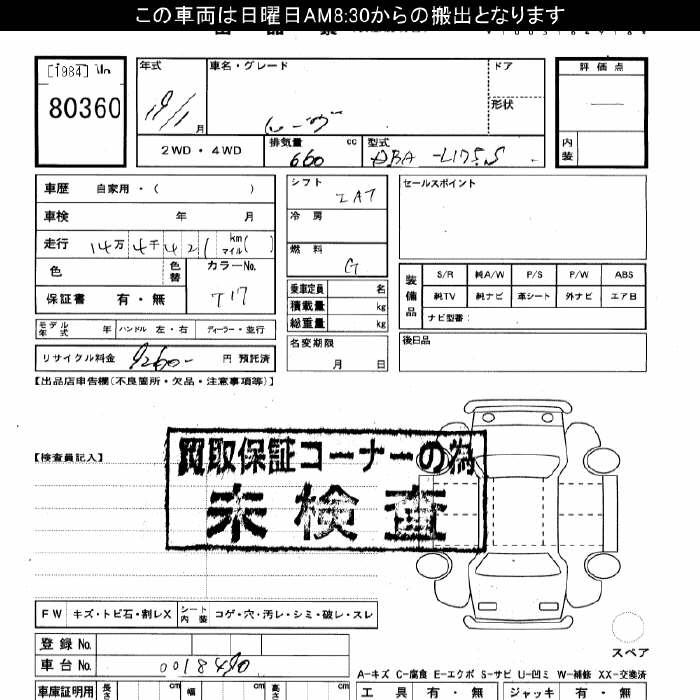 この車両は日曜日AM8:30からの搬出となります
[1984]
80360
年式
車名・グレード
ドア
形状
評価点
月
2WD・4WD
排気量 cc
660
型式
DBA-L175S
内装
車歴 自家用・( )
シフト
セールスポイント
車検 年 月
冷房
走行 14万4千421 km マイル( )
燃料
G
色
色替
カラーNo.
T17
保証書 有・無
乗車定員 名
積載量 kg
総重量 kg
装備品
S/R 純A/W P/S P/W ABS
純TV 純ナビ 革シート 外ナビ エアB
ナビ型番:
モデル年式 年 ハンドル 左・右 ディーラー・並行
名変期限
月 日
後日品
リサイクル料金 9260- 円 預託済
【出品店申告欄(不良箇所・欠品・注意事項等)】
【検査員記入】
買取保証コーナーの為
未検査
FW キズ・トビ石・割レX シート内装 コゲ・穴・汚レ・シミ・破レ・スレ
登録No.
車台No. 0018490
スペア
A-キズ C-腐食 E-エクボ S-サビ U-凹ミ W-補修 XX-交換済
車庫証明用 長さ cm 幅 cm 高さ cm
工具 有・無 ジャッキ 有・無